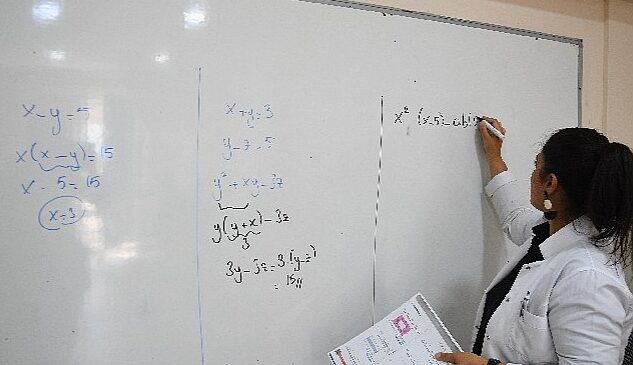 x-y=5
x(x-y)=15
x·5=15
x=3
x+y=3
y-z=5
y²+xy-3z
y(y+x)-3z
3
3y-3z=3·(y-z)
=15
x²(x-5)-